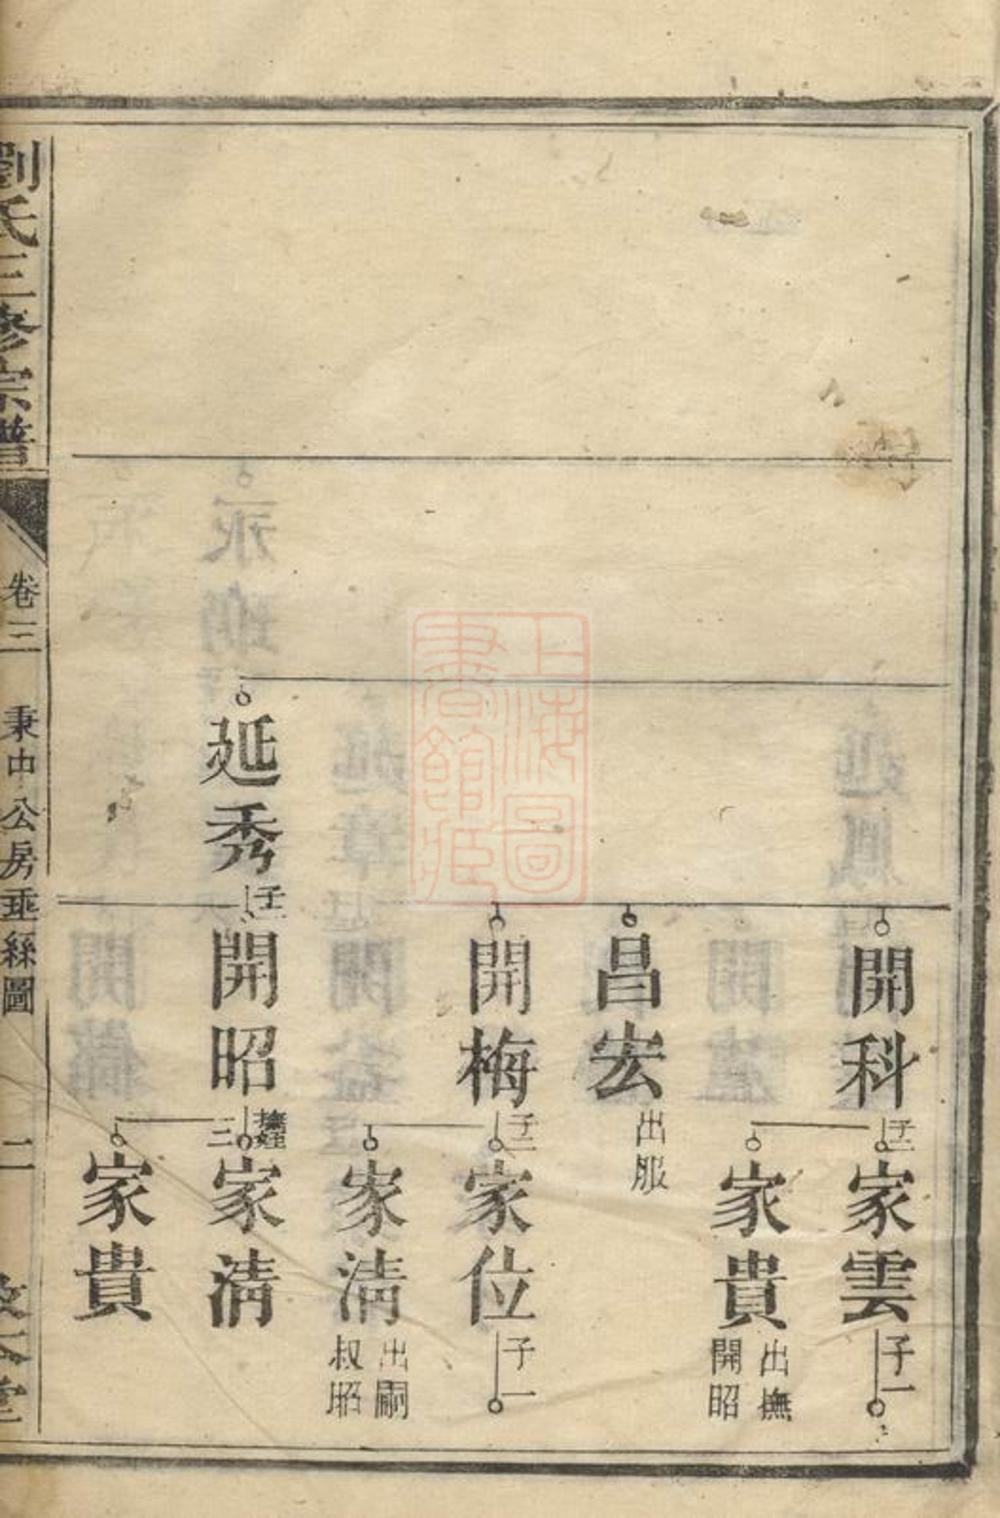 開科
子二
家雲
子一
家貴
出撫
開昭
昌宏
出服
開梅
子二
家位
子一
家淸
出嗣
叔昭
延秀
子一
開昭
家淸
家貴
劉氏三修宗譜
卷三
秉由公房垂絲圖
二
上海圖
書館藏